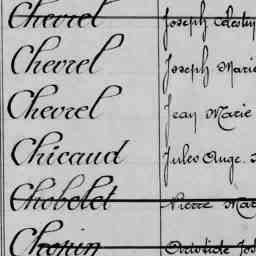 Chevrel Joseph Celesti
Chevrel Joseph Marie
Chevrel Jean Marie
Chicaud Jules Ange
Chobelet Pierre Mar
Chopin Aristide Jos